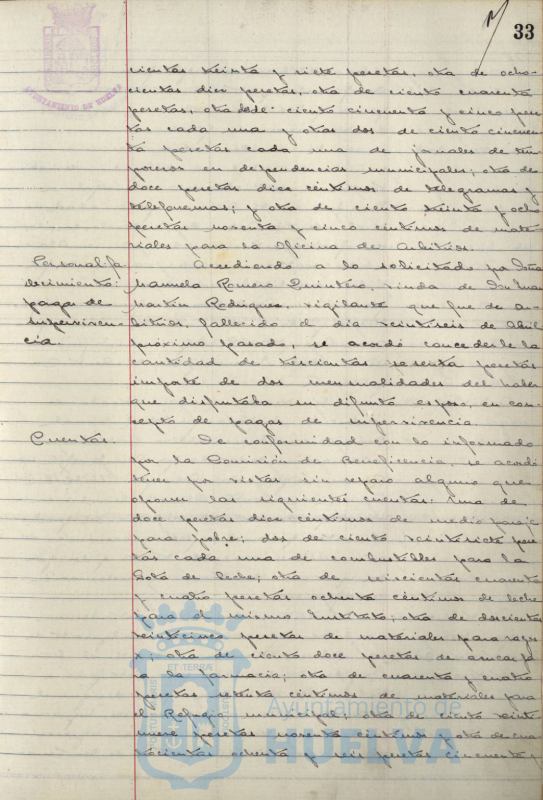 33
AYUNTAMIENTO DE HUELVA
cientas treinta y siete pesetas, otra de ocho-
cientas diez pesetas, otra de ciento cuarenta
pesetas, otra de ciento cincuenta y cinco pese
tas cada una y otras dos de ciento cincuen
ta pesetas cada una de jornales de tem
poreros en dependencias municipales; otra de
doce pesetas diez céntimos de telegramas y
telefonemas; y otra de ciento treinta y ocho
pesetas noventa y cinco céntimos de mate-
riales para la Oficina de Arbitrios.
Personal fa
llecimiento:
pagas de
superviven-
cia.
Accediendo a lo solicitado por Doña
Manuela Romero Quintero, viuda de Don Juan
Martin Rodriguez, vigilante que fue de ar-
bitrios, fallecido el dia veintiseis de Abril
próximo pasado, se acordó concederle la
cantidad de trescientas sesenta pesetas
importe de dos mensualidades del haber
que disfrutaba su difunto esposo, en con-
cepto de pagas de supervivencia.
Cuentas.
De conformidad con lo informado
por la Comisión de Beneficencia, se acordó
tener por vistas sin reparo alguno que
oponer las siguientes cuentas: una de
doce pesetas diez céntimos de medio pasaje
para pobre; dos de ciento veintisiete pese
tas cada una de combustibles para la
Gota de leche; otra de seiscientas cuarenta
y cuatro pesetas ochenta céntimos de leche
para el mismo Instituto; otra de doscientas
veinticinco pesetas de materiales para rayos
x; otra de ciento doce pesetas de azucar pa
ra la farmacia; otra de cuarenta y cuatro
pesetas setenta céntimos de materiales para
el Refugio municipal; otra de ciento veinte
nueve pesetas noventa céntimos y otra de cua
trocientas ochenta y seis pesetas cincuenta y
Ayuntamiento de
HUELVA